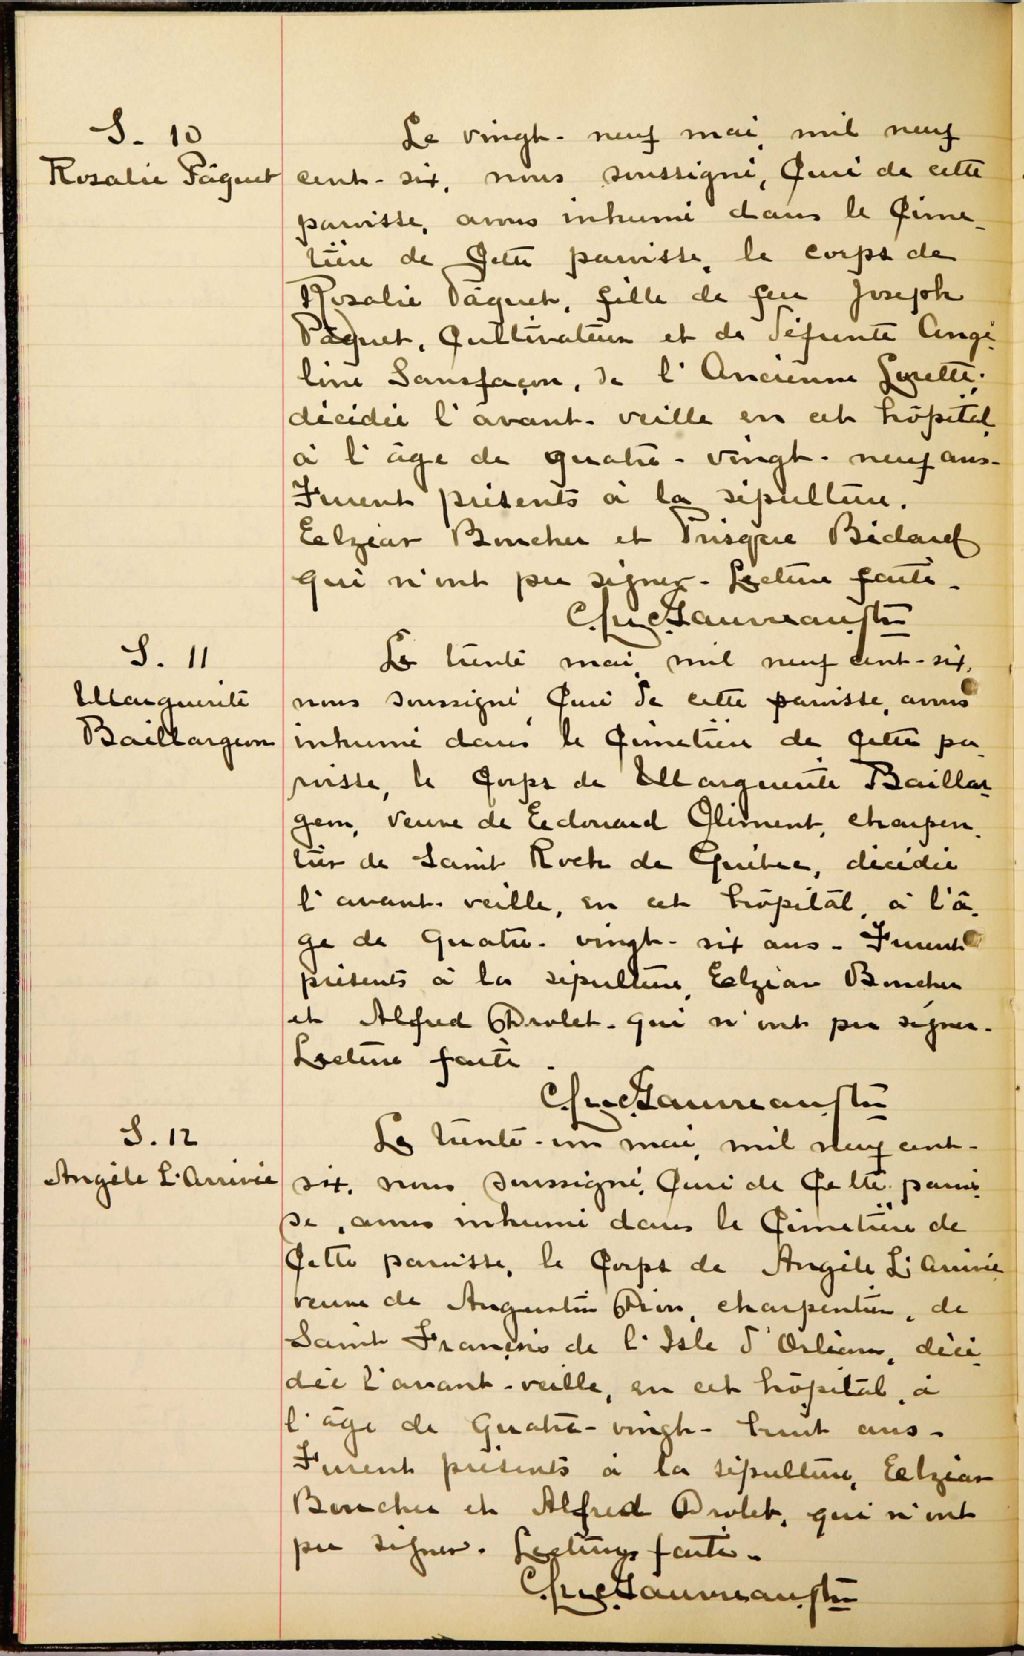 S. 10
Rosalie Pâquet
Le vingt-neuf mai, mil neuf
cent-six, nous soussigné, Curé de cette
paroisse, avons inhumé dans le Cime-
tière de Cette paroisse, le corps de
Rosalie Pâquet, fille de feu Joseph
Pâquet, Cultivateur et de défunte Angé-
line Sansfaçon, de l'Ancienne Lorette,
décédée l'avant-veille en cet hôpital,
à l'âge de quatre-vingt-neuf ans-
Furent présents à la sépulture,
Eelzéar Boucher et Prisque Bédard
qui n'ont pu signer- Lecture faite-
Gauvreau ptre
S. 11
Marguerite
Baillargeon
Le trente mai, mil neuf cent-six,
nous soussigné, Curé de cette paroisse, avons
inhumé dans le Cimetière de Cette pa-
roisse, le Corps de Marguerite Baillar-
geon, veuve de Eedouard Oliment, charpen-
tier de Saint Roch de Québec, décédée
l'avant-veille, en cet hôpital, à l'â-
ge de Quatre-vingt-six ans- Furent
présents à la sépulture, Eelzéar Boucher
et Alfred Drolet- qui n'ont pu signer-
Lecture faite.
Gauvreau ptre
S. 12
Angèle L'Arrivée
Le trente-un mai, mil neuf cent-
six, nous soussigné, Curé de Cette parois-
se, avons inhumé dans le Cimetière de
Cette paroisse, le Corps de Angèle L'Arrivée
veuve de Augustin Dion, charpentier, de
Saint François de l'Isle d'Orléans, décé-
dée l'avant-veille, en cet hôpital, à
l'âge de Quatre-vingt-huit ans-
Furent présents à la sépulture, Eelzéar
Boucher et Alfred Drolet, qui n'ont
pu signer. Lecture faite-
Gauvreau ptre